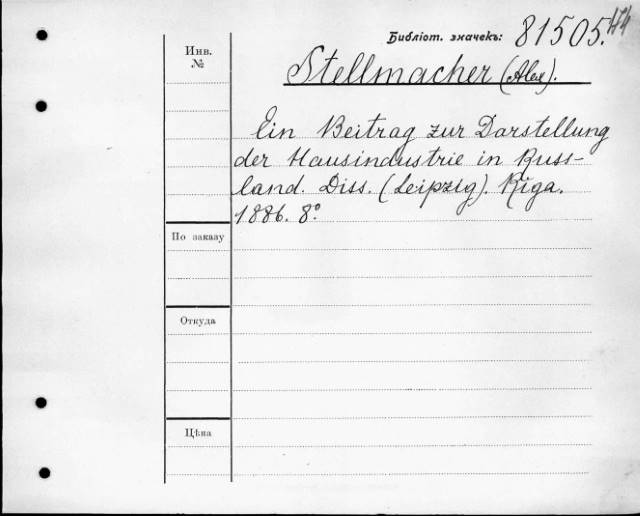 Библіот. значекъ: 81505.
Инв.
№
Stellmacher (Alex).
Ein Beitrag zur Darstellung
der Hausindustrie in Russ-
land. Diss. (Leipzig). Riga.
1886. 8º
По заказу
Откуда
Цѣна